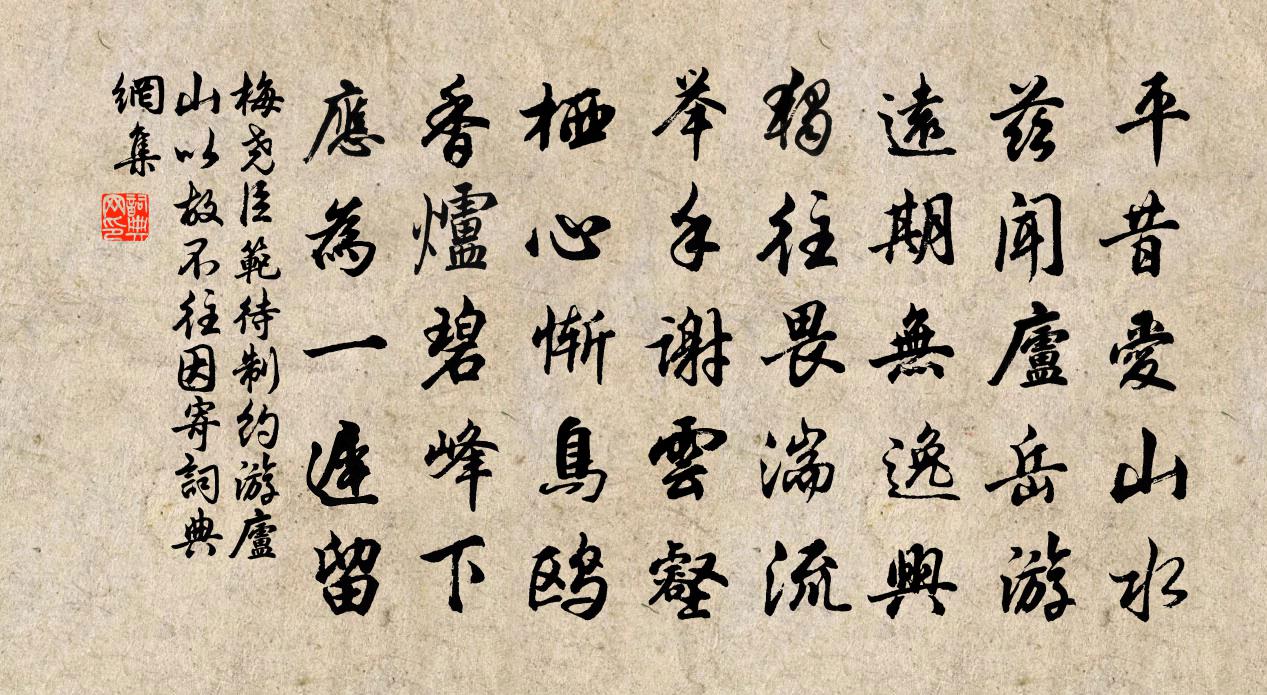 平昔愛山水
茲聞廬岳游
遠期無逸興
獨往畏湍流
举手謝雲壑
栖心慚鳥鸥
香爐碧峰下
應為一遲留
梅尧臣範待制約游廬
山以故不往因寄詞典
網集
詞典网印